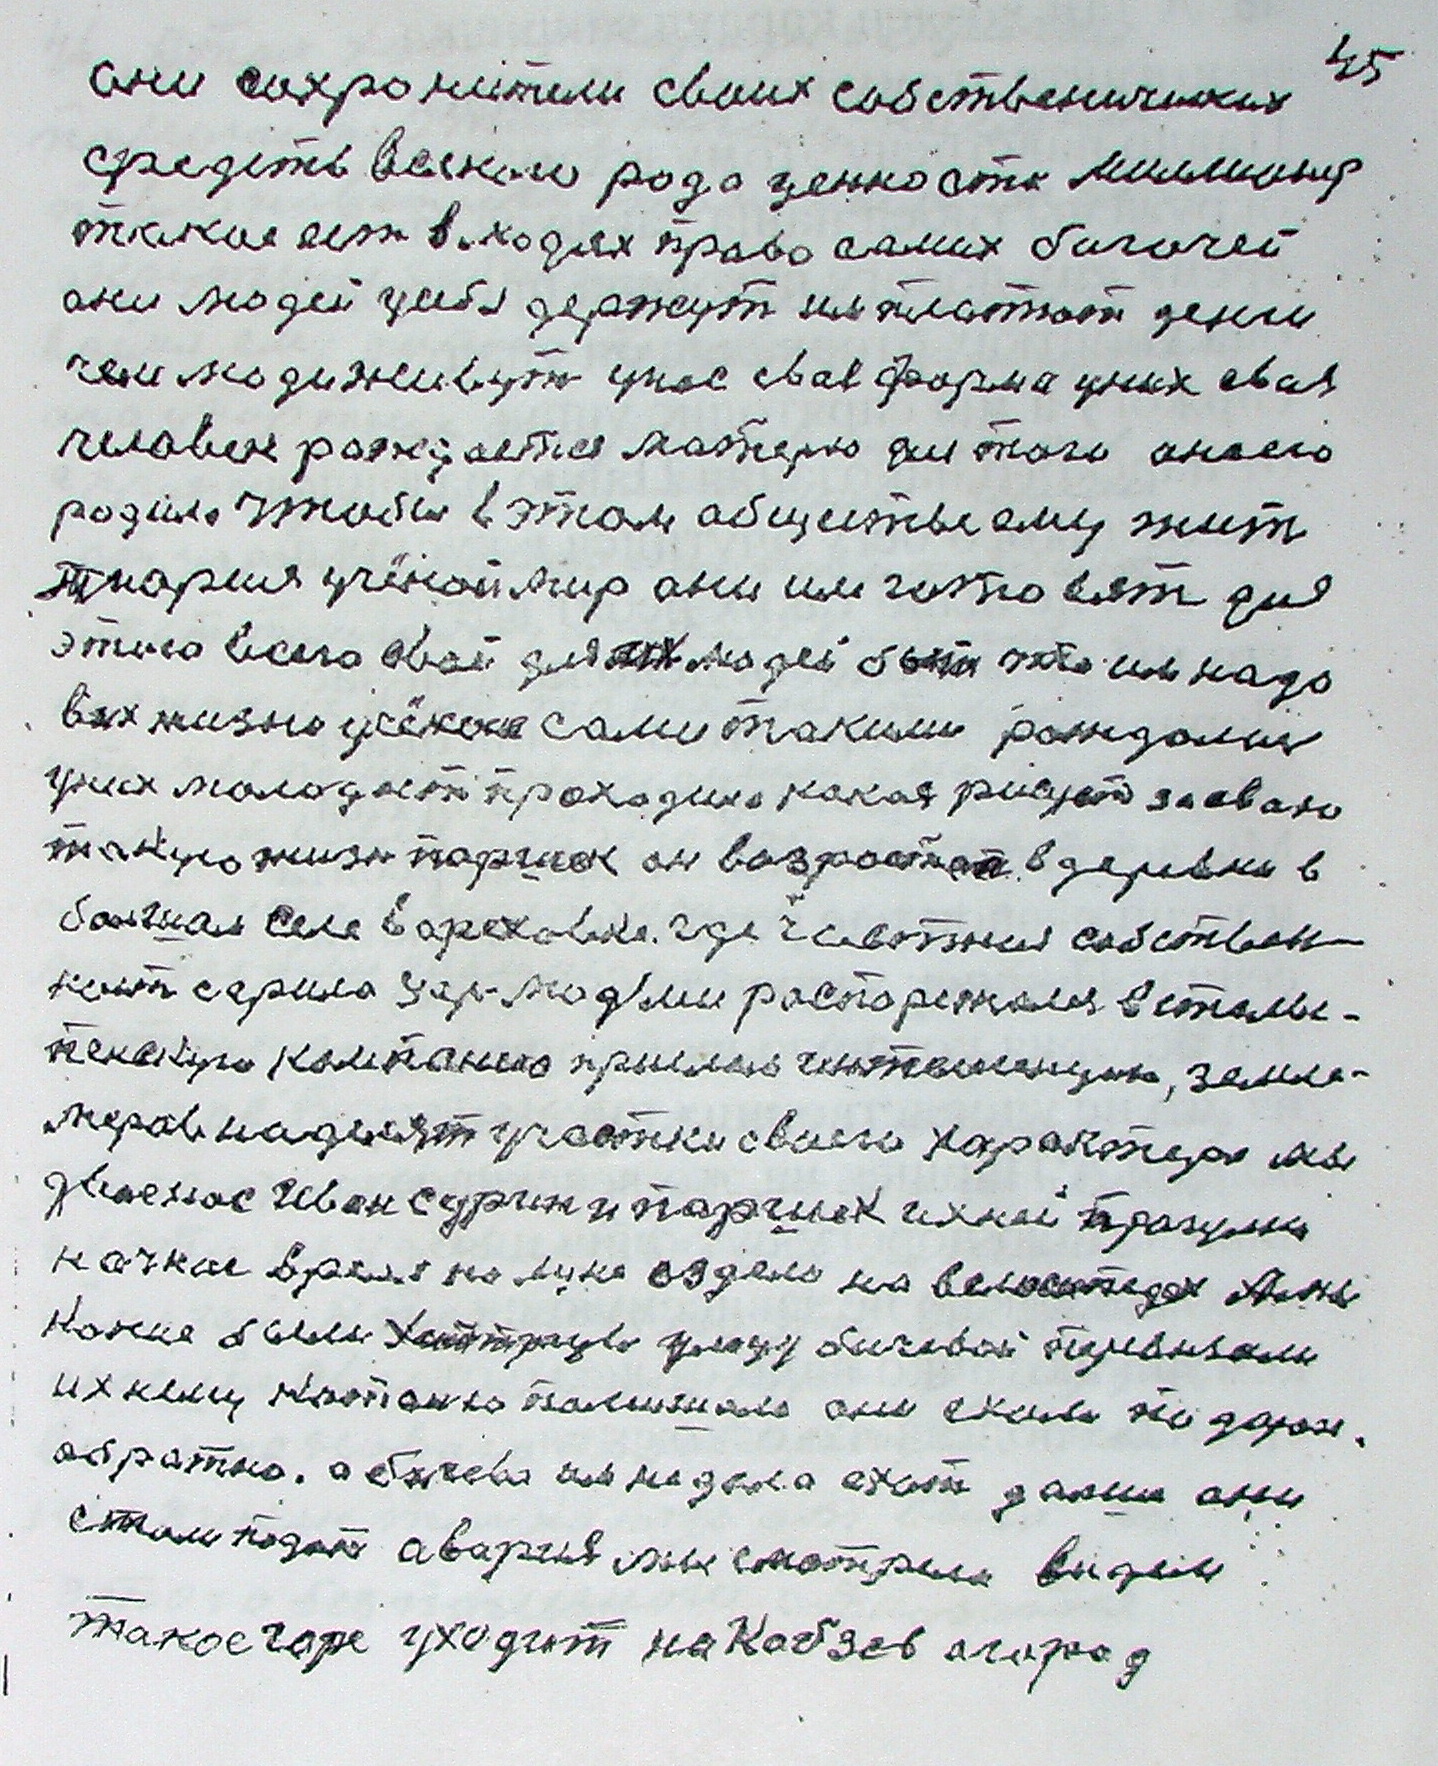 45
они сахронители своих собственических
средств всякого рода ценности милионер
такое ест в людях право самих богачей
они людей у себя держут им платют денги
чем люди живут у нас своя форма у них своя
человек рождается матерю для того она его
родила чтобы в этом обществе ему жит
парня учёной мир они им готовят для
этого всего свой для людей быт что им надо
в их жизню учёнои сами такими рождалис
у них молодост проходила какая рисует за свою
такую жизн паршек он возростает в деревни в
болшом селе в ореховке. где частния собствен-
ност царила цар людями распоряжался в столы-
пенскую компанию прислал интелигенцию, земле-
меров наделят участки своего характера мы
двое нас Иван Сурин и паршек ихней прогулки
начное время на луке ездело на велосипедах
кожие были улицу бичевой перевизали
ихнему компанию помишало они ехали по дороги.
обратно. а бичева им не дала ехат далше они
стали подат авария мы смотрели видели
такое горе уходит на Кобзев огород